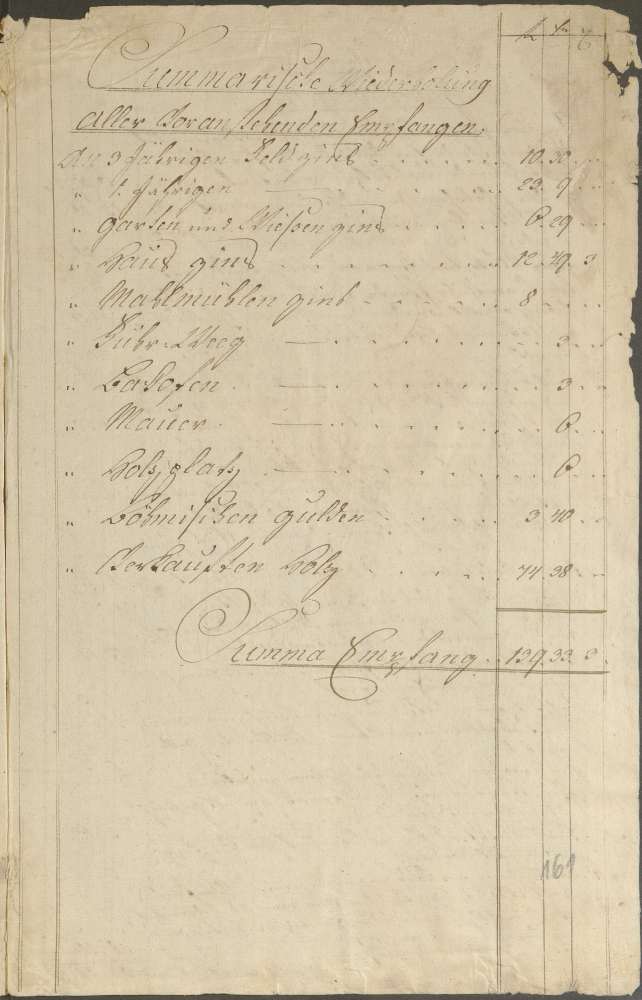 fl kr ₰
Summarische Wiederholung
aller voranstehenden Empfangen.
An 3 Jährigen Feldzins . . . . . 10. 30. . .
" 1. Jährigen — . . . . . 23. 9. . .
" Garten und Wiesen zins . . . . . 6. 29 . . .
" Hauß zins . . . . . . . . 12. 49. 3
" Mahlmühlen zins . . . . . . 8 . . . .
" Führ-Weeg — . . . . . . . 3 . .
" Bakofen . — . . . . . . . 3 . .
" Mauer . — . . . . . . . 6 . . .
" Holzplatz . — . . . . . . . 6 . . .
" Böhmischen gulden . . . . . 3 40 . .
" Verkauften Holz . . . . . 74. 38 . .
Summa Empfang . . 139. 33. 3.
161